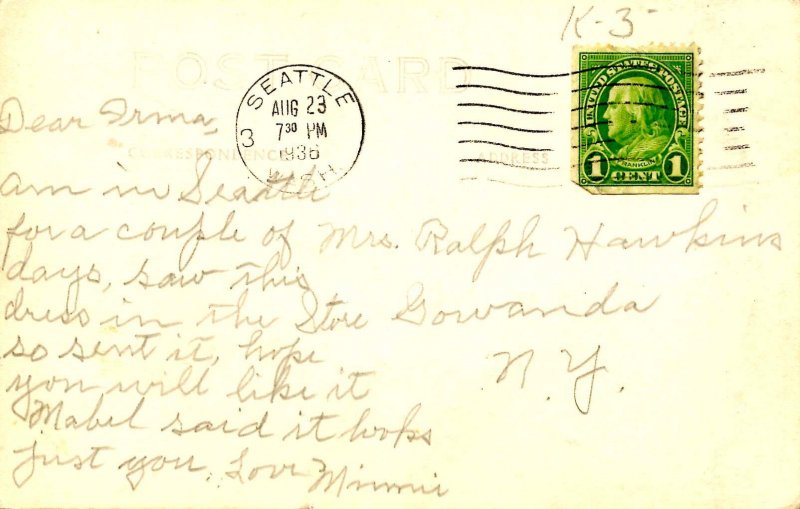 K-3
POST CARD
SEATTLE
AUG 23
7 30 PM
1936
3
WASH.
UNITED STATES POSTAGE
FRANKLIN
1 CENT 1
CORRESPONDENCE
ADDRESS
Dear Irma,
am in Seattle
for a couple of
days, saw this
dress in the Store
so sent it, hope
you will like it
Mabel said it looks
just you. Love
Minnie
Mrs. Ralph Hawkins
Gowanda
N.Y.